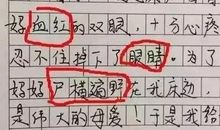 妈血红的双眼，十分心疼
忍不住掉下了眼睛。为了
妈妈尸横遍野在我床边，
是伟大的母爱！于是我给